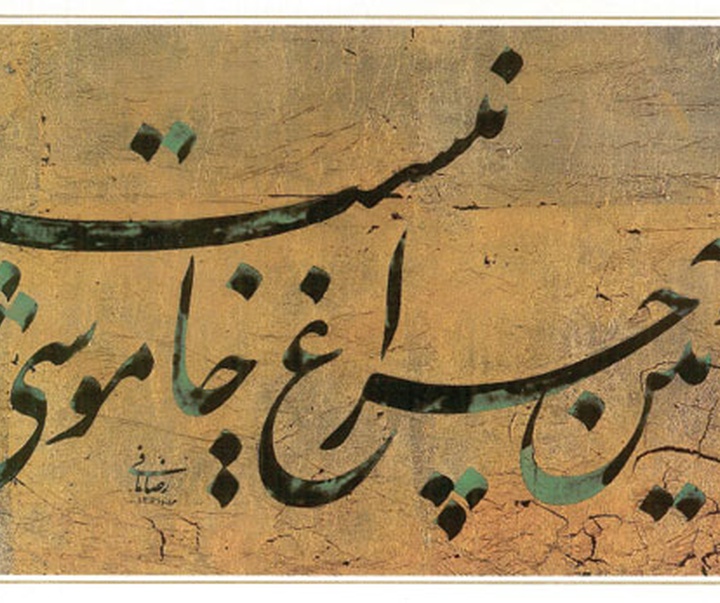 نیست
چراغ خاموشی
رضا مافی